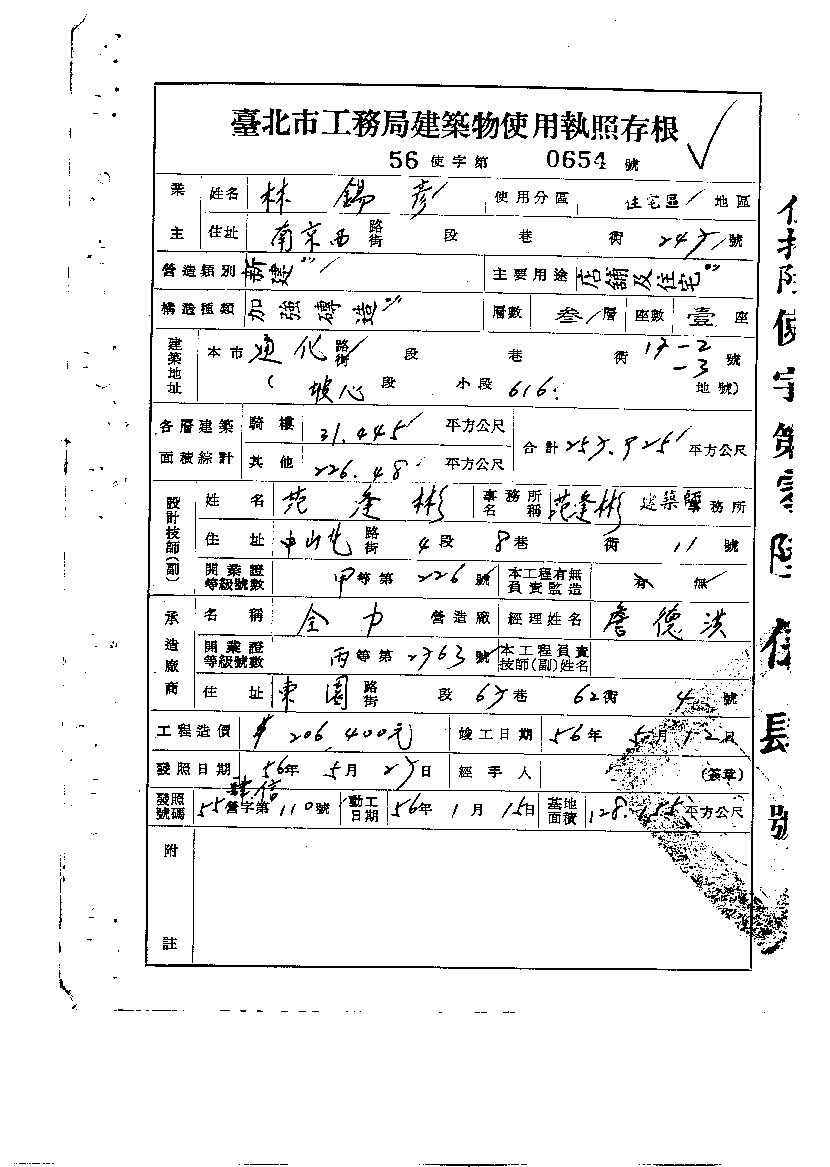 臺北市工務局建築物使用執照存根
56 使字第 0654 號
業主 姓名 林錫彥 使用分區 住宅區 地區
住址 南京西 路街 段 巷 衖 號
營造類別 新建 主要用途 店舖及住宅
構造種類 加強磚造 層數 叁 層 座數 壹 座
建築地址 本市 通化 路街 段 巷 衖 17-2 -3 號
( 坡心 段 小段 616 地號)
各層建築面積綜計 騎樓 31.445 平方公尺 合計 平方公尺
其他 226.48 平方公尺
設計技師(副) 姓名 范逢彬 事務所名稱 范逢彬 建築師 事務所
住址 中山北 路街 4 段 8 巷 衖 11 號
開業證等級號數 甲 等第 226 號 本工程有無負責監造 有 無
承造廠商 名稱 全力 營造廠 經理姓名 詹德洪
開業證等級號數 丙 等第 號 本工程負責技師(副)姓名
住址 東園 路街 段 巷 62 衖 4 號
工程造價 $206,400元 竣工日期 56 年 5 月 12 日
發照日期 56 年 5 月 日 經手人 (簽章)
發照號碼 55 營字第 110 號 動工日期 56 年 1 月 15 日 基地面積 平方公尺
附註
使字第零陸伍肆號